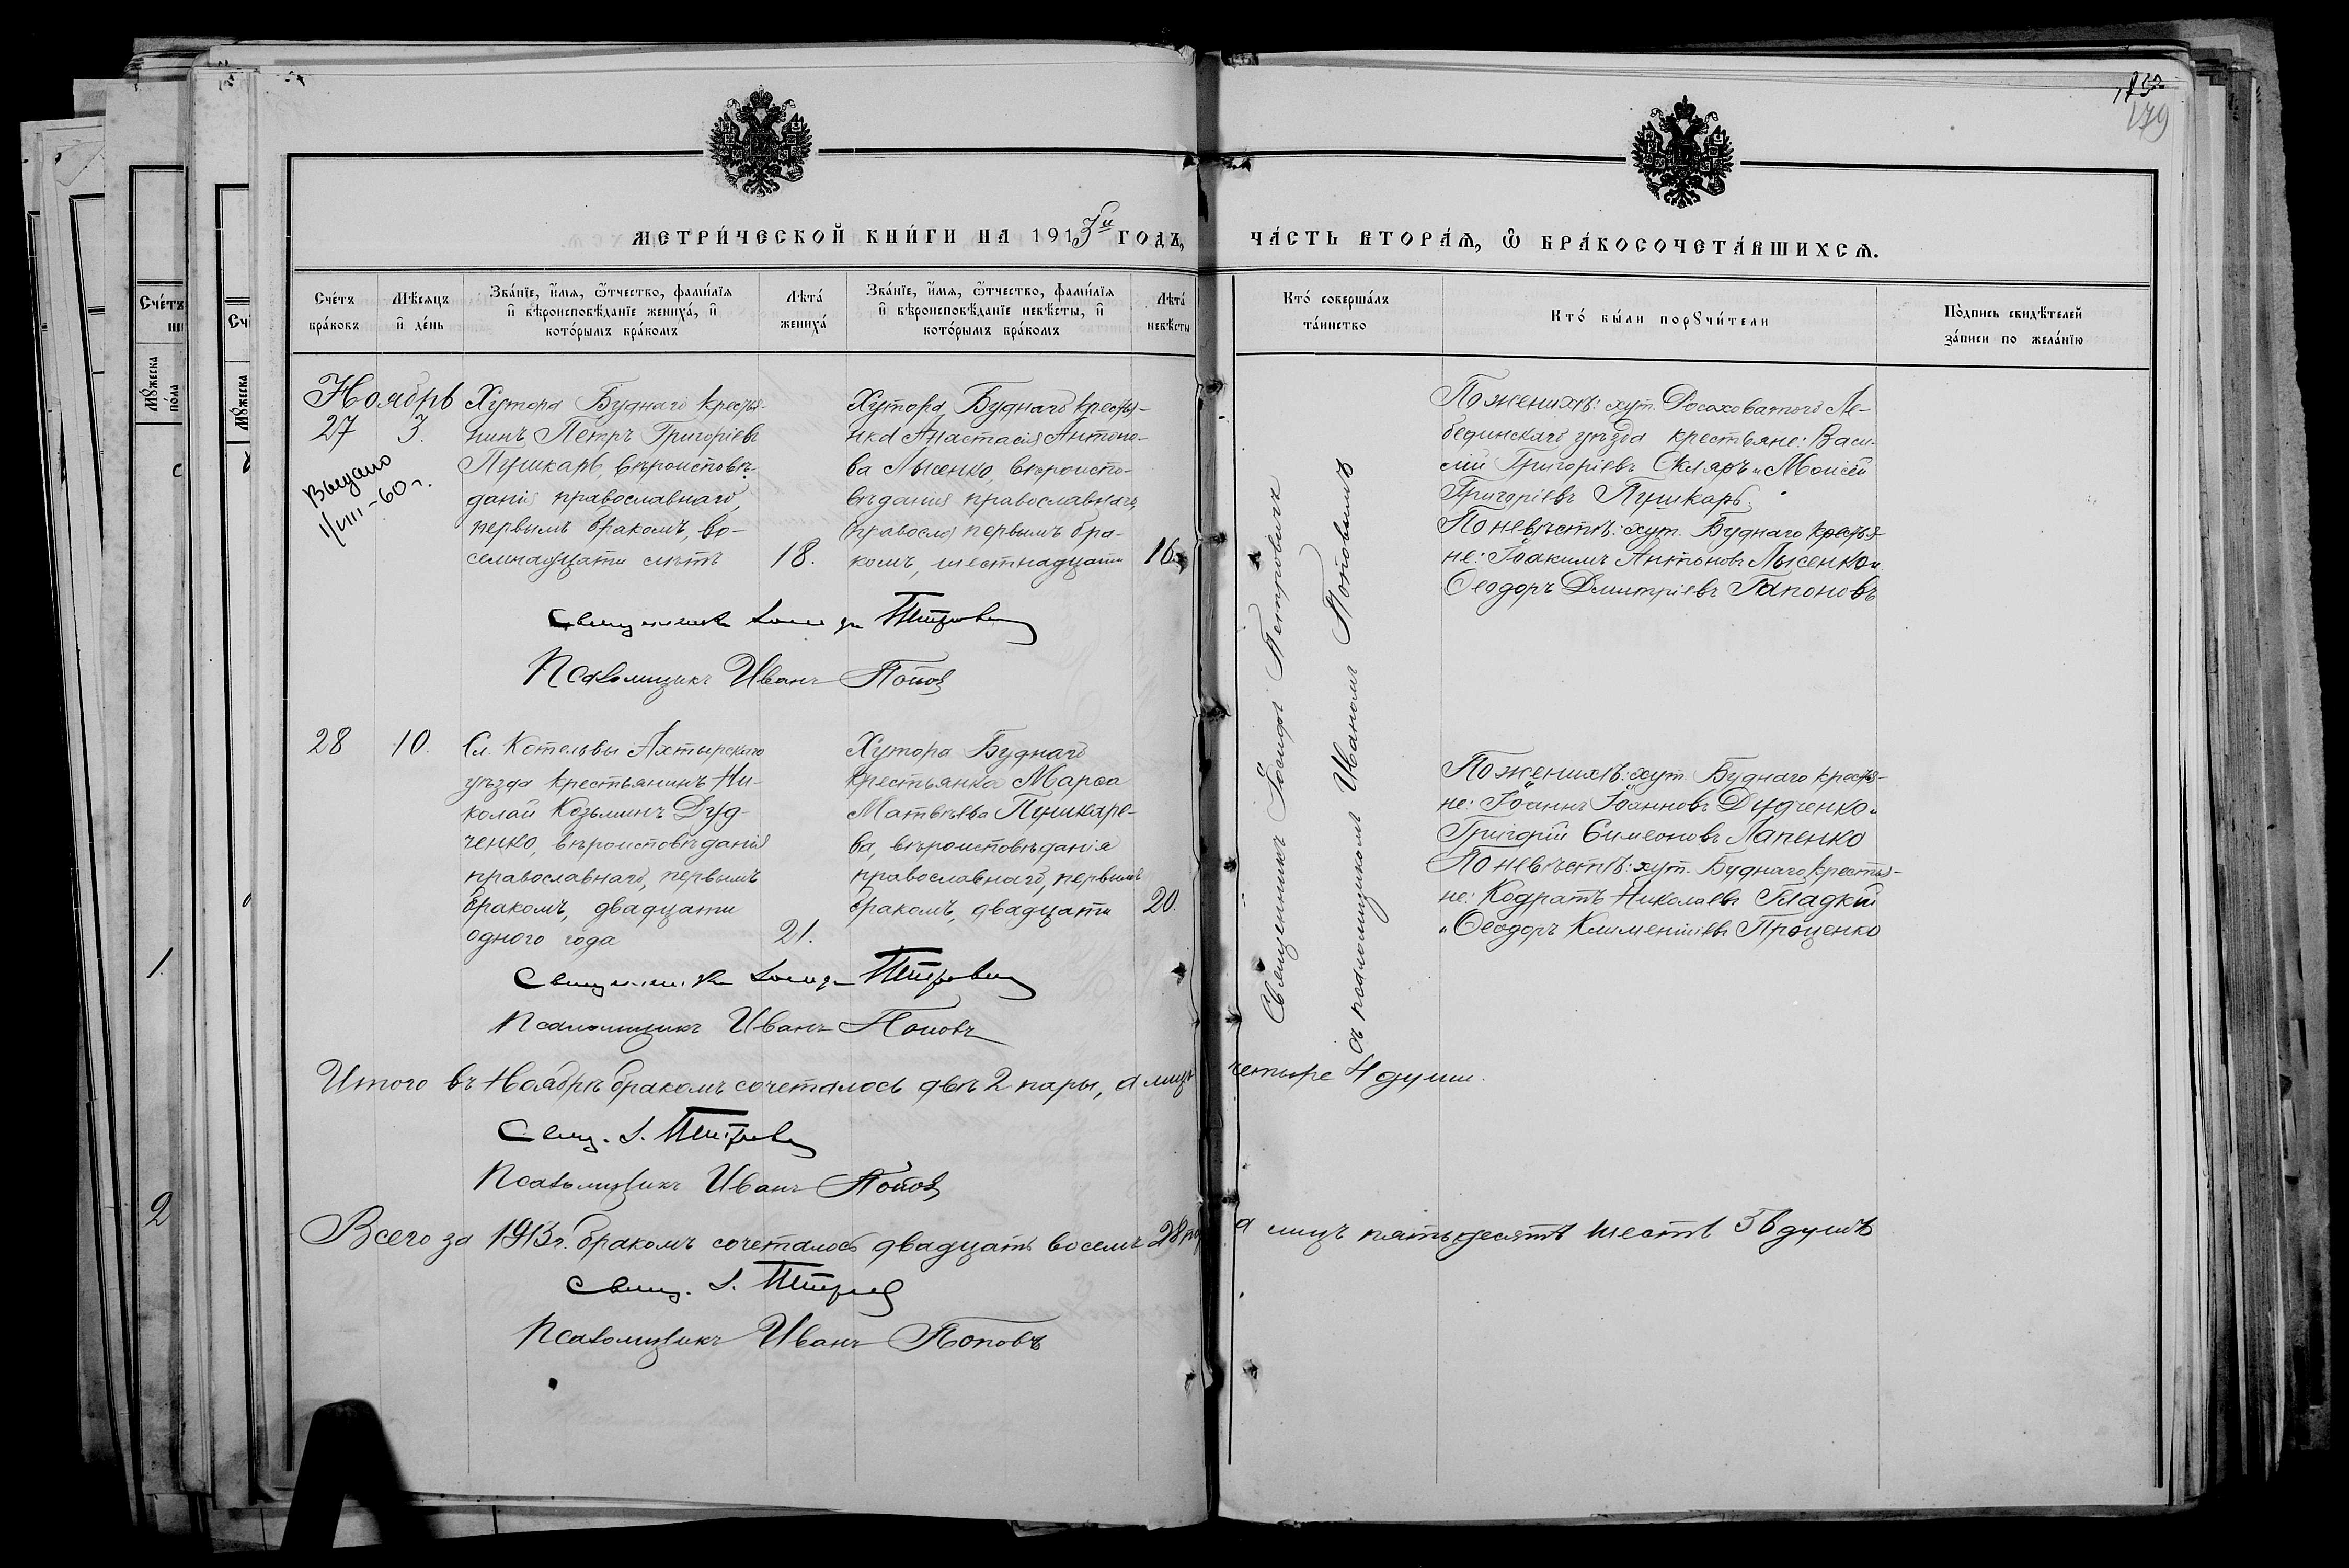 179
МЕТРИ́ЧЕСКОЙ КНИ́ГИ НА 1913й ГОДЪ,
ЧА́СТЬ ВТОРА́Ѧ, Ѽ БРА́КОСОЧЕТА́ВШИХСѦ.
Сче́тъ бра́ковъ
Мѣ́сяцъ и҆ де́нь
Зва́нїе, и҆́мѧ, ѻ҆́тчество, фами́лїѧ
и҆ вѣроисповѣ́данїе жениха̀, и҆
кото́рымъ бра́комъ
Лѣта̀ жениха̀
Зва́нїе, и҆́мѧ, ѻ҆́тчество, фами́лїѧ
и҆ вѣроисповѣ́данїе невѣ́сты, и҆
кото́рымъ бра́комъ
Лѣта̀ невѣ́сты
Кто́ соверша́лъ
та́инство
Кто́ бы́ли порꙋчи́тели
По́дпись свидѣ́телей
за́писи по жела́нїю
Ноябрь
27
3.
Выдано
1/VIII-60 г.
Хутора Буднаго крестья-
нинъ Петръ Григоріевъ
Пушкарь, вѣроисповѣ-
данія православнаго,
первымъ бракомъ, во-
семнадцати лѣтъ
18.
Хутора Буднаго крестья-
нка Анастасія Антоно-
ва Лысенко, вѣроиспо-
вѣданія православнаго,
(правосл) первымъ бра-
комъ, шестнадцати
16
Священникъ Іосифъ Петровичъ
съ псаломщикомъ Иваномъ Поповымъ
По женихѣ: хут. Досоховатого Ле-
бединскаго уѣзда крестьяне: Васи-
лій Григоріевъ Скляръ и Моисей
Григоріевъ Пушкарь.
По невѣстѣ: хут. Буднаго крестья-
не: Іоакимъ Антоновъ Лысенко и
Ѳеодоръ Димитріевъ Гапоновъ
Священникъ Іосифъ Петровичъ
Псаломщикъ Иванъ Попов
28
10.
Сл. Котельвы Ахтырскаго
уѣзда крестьянинъ Ни-
колай Козьминъ Дуд-
ченко, вѣроисповѣданія
православнаго, первымъ
бракомъ, двадцати
одного года
21.
Хутора Буднаго
крестьянка Марѳа
Матвѣева Пушкаре-
ва, вѣроисповѣданія
православнаго, первымъ
бракомъ, двадцати
20.
По женихѣ: хут. Буднаго крестья-
не: Іоаннъ Іоанновъ Дудченко и
Григорій Симеоновъ Лапенко
По невѣстѣ: хут. Буднаго крестья-
не: Кодратъ Николаевъ Гладкій
и Ѳеодоръ Климентіевъ Проценко
Священникъ Іосифъ Петровичъ
Псаломщикъ Иванъ Поповъ
Итого въ Ноябрѣ бракомъ сочеталось двѣ 2 пары, а лицъ четыре 4 души.
Свящ. І. Петровичъ
Псаломщикъ Иванъ Попов
Всего за 1913 г. бракомъ сочеталось двадцать восемь 28 пар а лицъ пятьдесятъ шесть 56 душъ
Свящ. І. Петровичъ
Псаломщикъ Иванъ Поповъ
Сче́тъ
Мꙋ́жеска
по́ла
1.
2